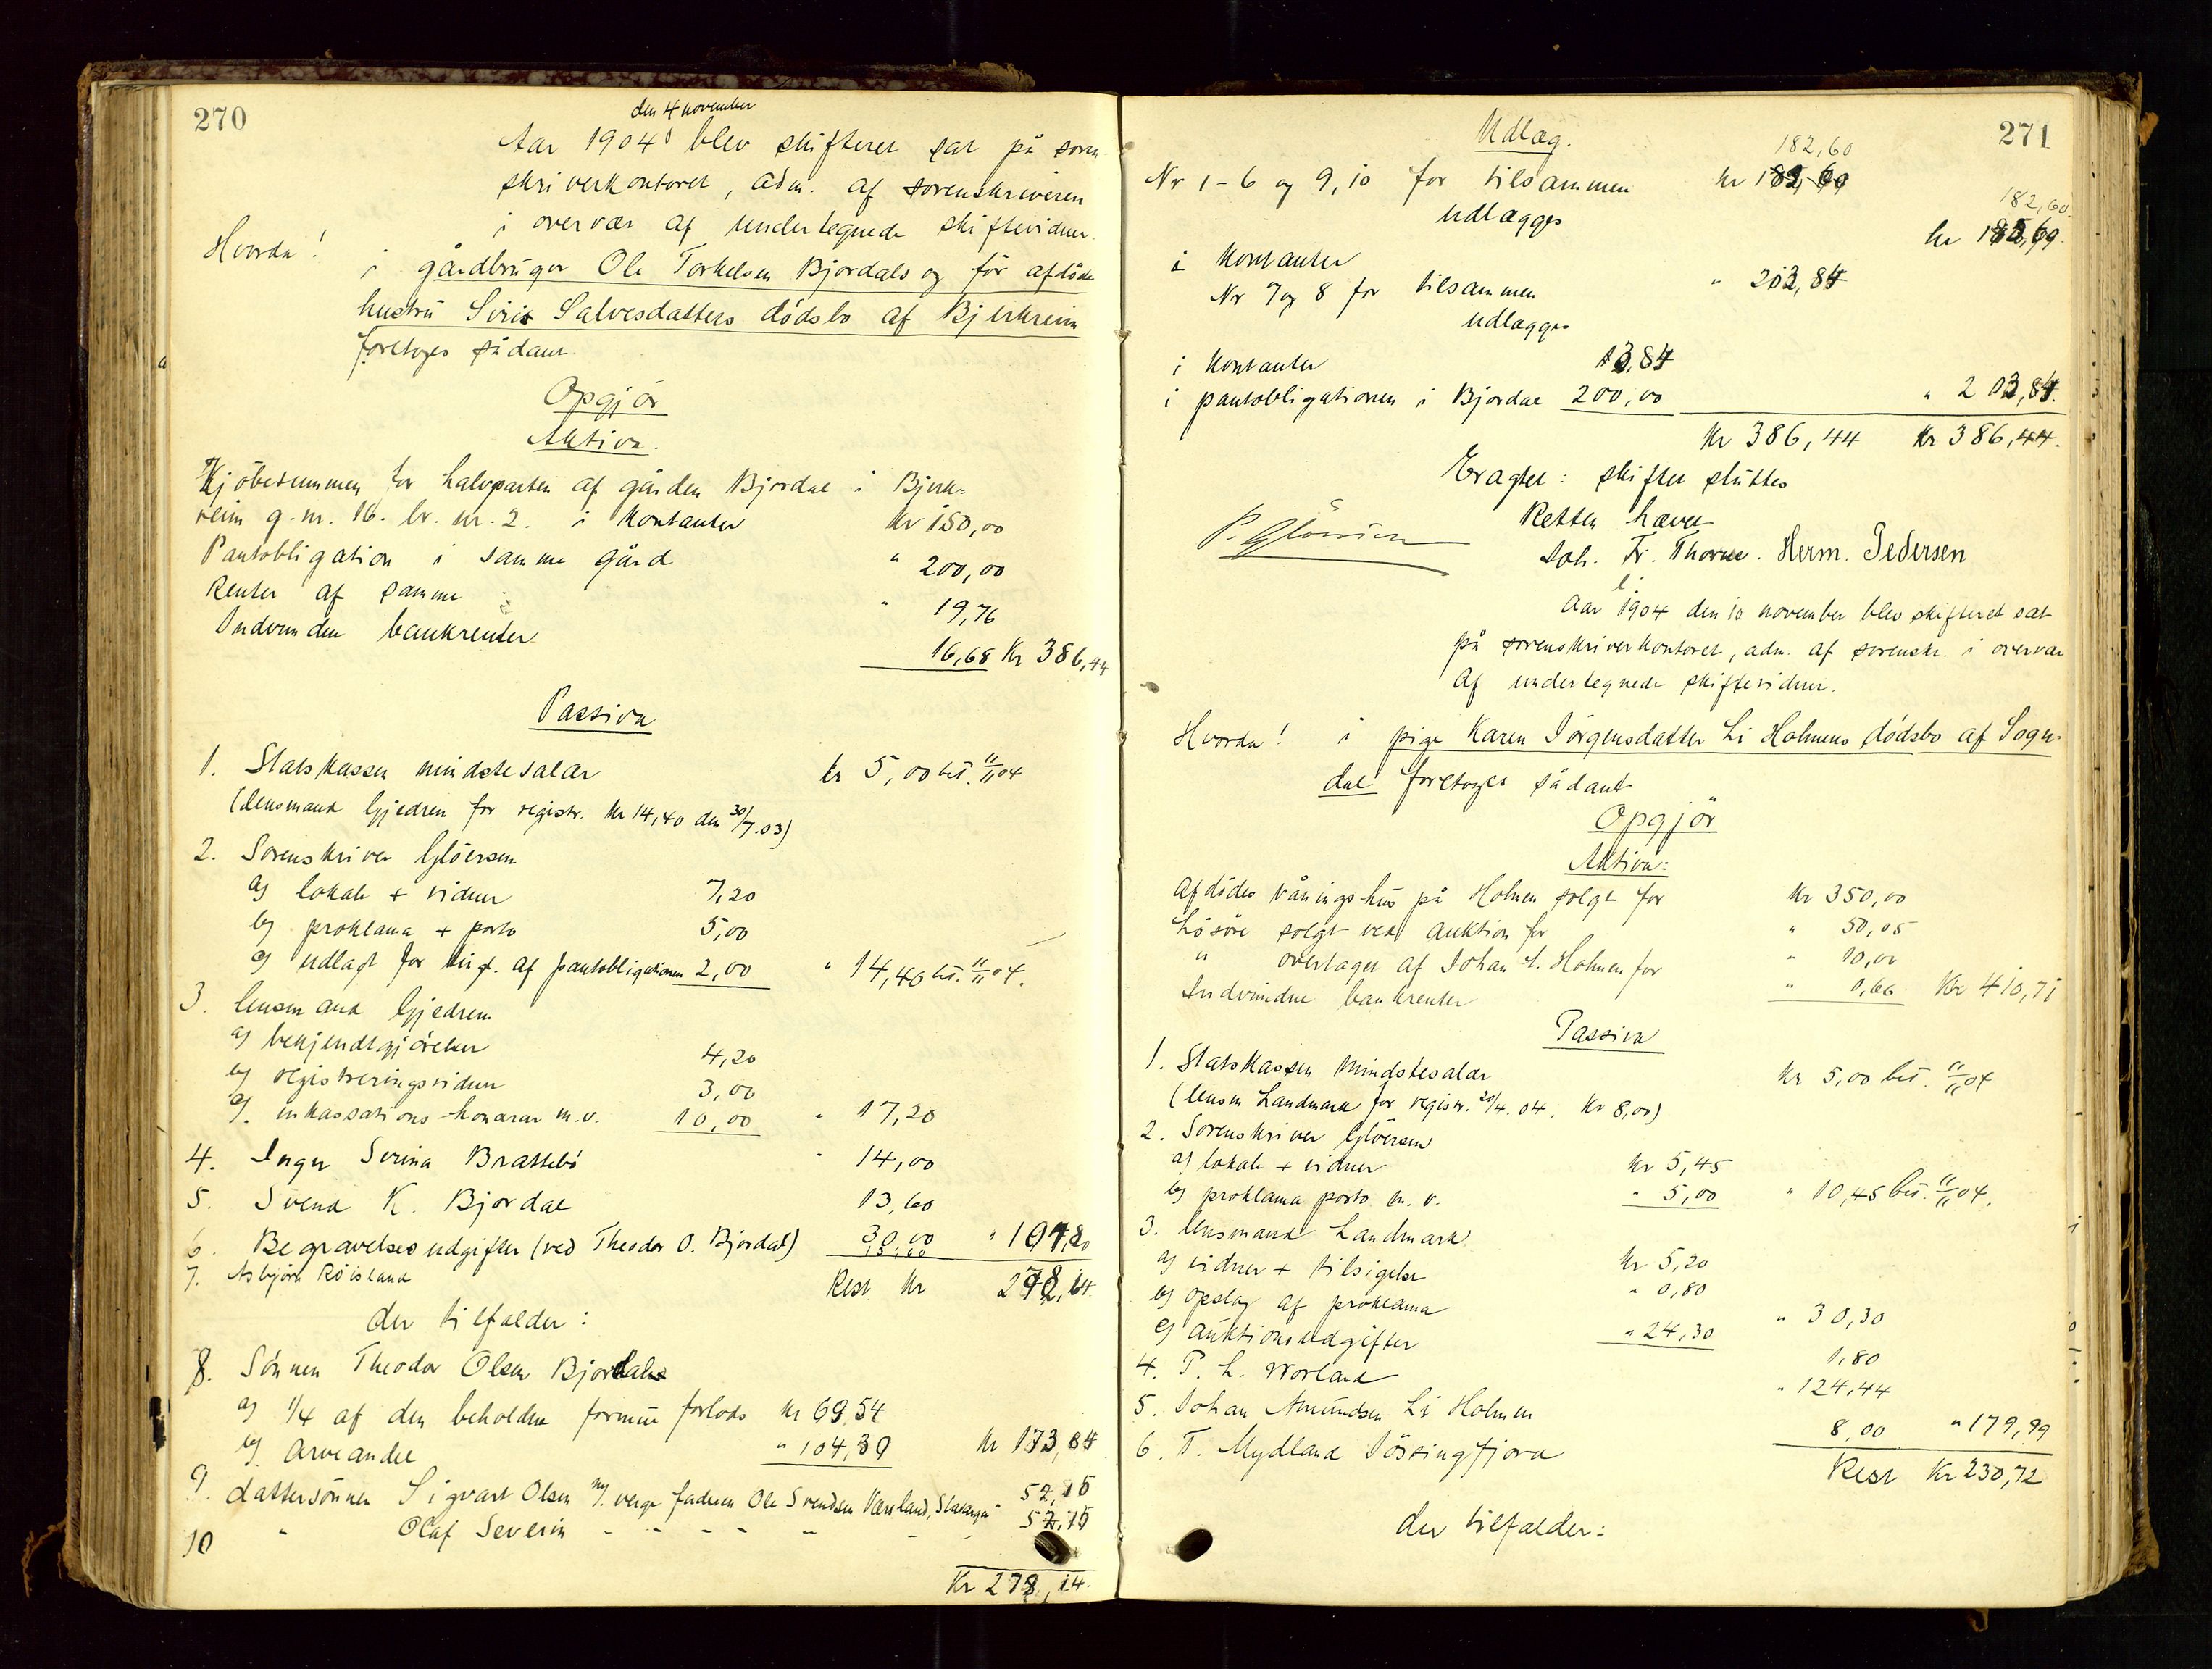 270
den 4 november
Aar 1904 blev skifteret sat på soren
skriverkontoret, adm. af sorenskriveren
i overvær af undertegnede skiftevidner.
Hvorda!
i gårdbruger Ole Torkelsen Bjordals og før afdöde
hustru Siris Salvesdatters dödsbo af Bjerkreim
foretoges sådant
Opgjör
Aktiva.
Kjöbesummen for halvparten af gården Bjordal i Bjerk-
reim g. nr. 16. br. nr. 2. i kontanter kr 150,00
Pantobligation i samme gård " 200,00
Renter af samme " 19,76
Indvundne bankrenter 16,68 Kr 386,44
Passiva
1. Statskassen mindstesalær kr 5,00 bet. 11/11 04
(lensmand Gjedrem for registr. kr 14,40 den 30/7.03)
2. Sorenskriver Glöersen
a) lokale + vidner 7,20
b) proklama + porto 5,00
c) udlagt for tingl. af pantobligationen 2,00 " 14,40 bet. 11/11 04.
3. lensmand Gjedrem
a) bekjendtgjörelser 4,20
b) registreringsvidner 3,00
c). inkassations-honorar m.v. 10,00 " 17,20
4. Inger Serina Brattebö " 14,00
5. Svend K. Bjordal 13,60
6. Begravelsesudgifter (ved Theodor O. Bjordal) 30,00 "
7. Asbjörn Röisland
Rest kr
der tilfalder:
8. Sönnen Theodor Olsen Bjordal
a) 1/4 af den beholdne formue forlods kr 69,54
b) Arveandel " 104,30 kr 173,84
9. dattersönnen Sigvart Olsen v. verge faderen Ole Svendsen 52,15
10 " Olaf Severin - - - - " - 52,15
Kr 278,14.
271
Udlæg.
182,60
Nr 1-6 og 9,10 for tilsammen kr 182,60
udlægges
182,60.
i kontanter kr 182,60.
Nr 7 og 8 for tilsammen " 203,84
udlægges
i kontanter 3,84
i pantobligationen i Bjordal 200,00 " 203,84.
Kr 386,44 Kr 386,44.
Eragtet: skiftet sluttes
Retten hævet
P. Glöersen
Joh. Fr. Thorne. Herm. Pedersen
Aar 1904 den 10 november blev skifteret sat
på sorenskriverkontoret, adm. af sorenskr. i overvær
af undertegnede skiftevidner.
Hvorda! i pige Karen Jörgensdatter Li Holmens dödsbo af Sogn-
dal foretoges sådant
Opgjör
Aktiva:
Afdödes våningshus på Holmen solgt for kr 350,00
Lösöre solgt ved auktion for " 50,05
" overtaget af Johan A. Holmen for " 10,00
Indvundne bankrenter " 0,66 Kr 410,71
Passiva
1. Statskassen mindstesalær kr 5,00 bet. 11/11 04
(lensm Landmark for registr. 20/4. 04. kr 8,00)
2. Sorenskriver Glöersen
a) lokale + vidner kr 5,45
b) proklama porto m. v. " 5,00 " 10,45 bet. 11/11 04.
3. lensmand Landmark
a) vidner + tilsigelse kr 5,20
b) opslag af proklama " 0,80
c) auktionsudgifter " 24,30 " 30,30
4. P. L. Worland 1,80
5. Johan Amundsen Li Holmen " 124,44
6. T. Mydland Jössingfjord 8,00 " 179,99
Rest Kr 230,72
der tilfalder: